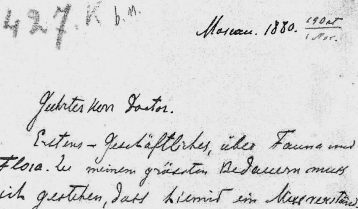 427. K b. n.
Moscau. 1880. 19 Oct / 1 Nov.
Geehrter Herr Doctor.
Erstens – Geschäftliches, über Fauna und
Flora. Zu meinem grössten Bedauern muss
ich gestehen, dass hiemid ein Missverständ